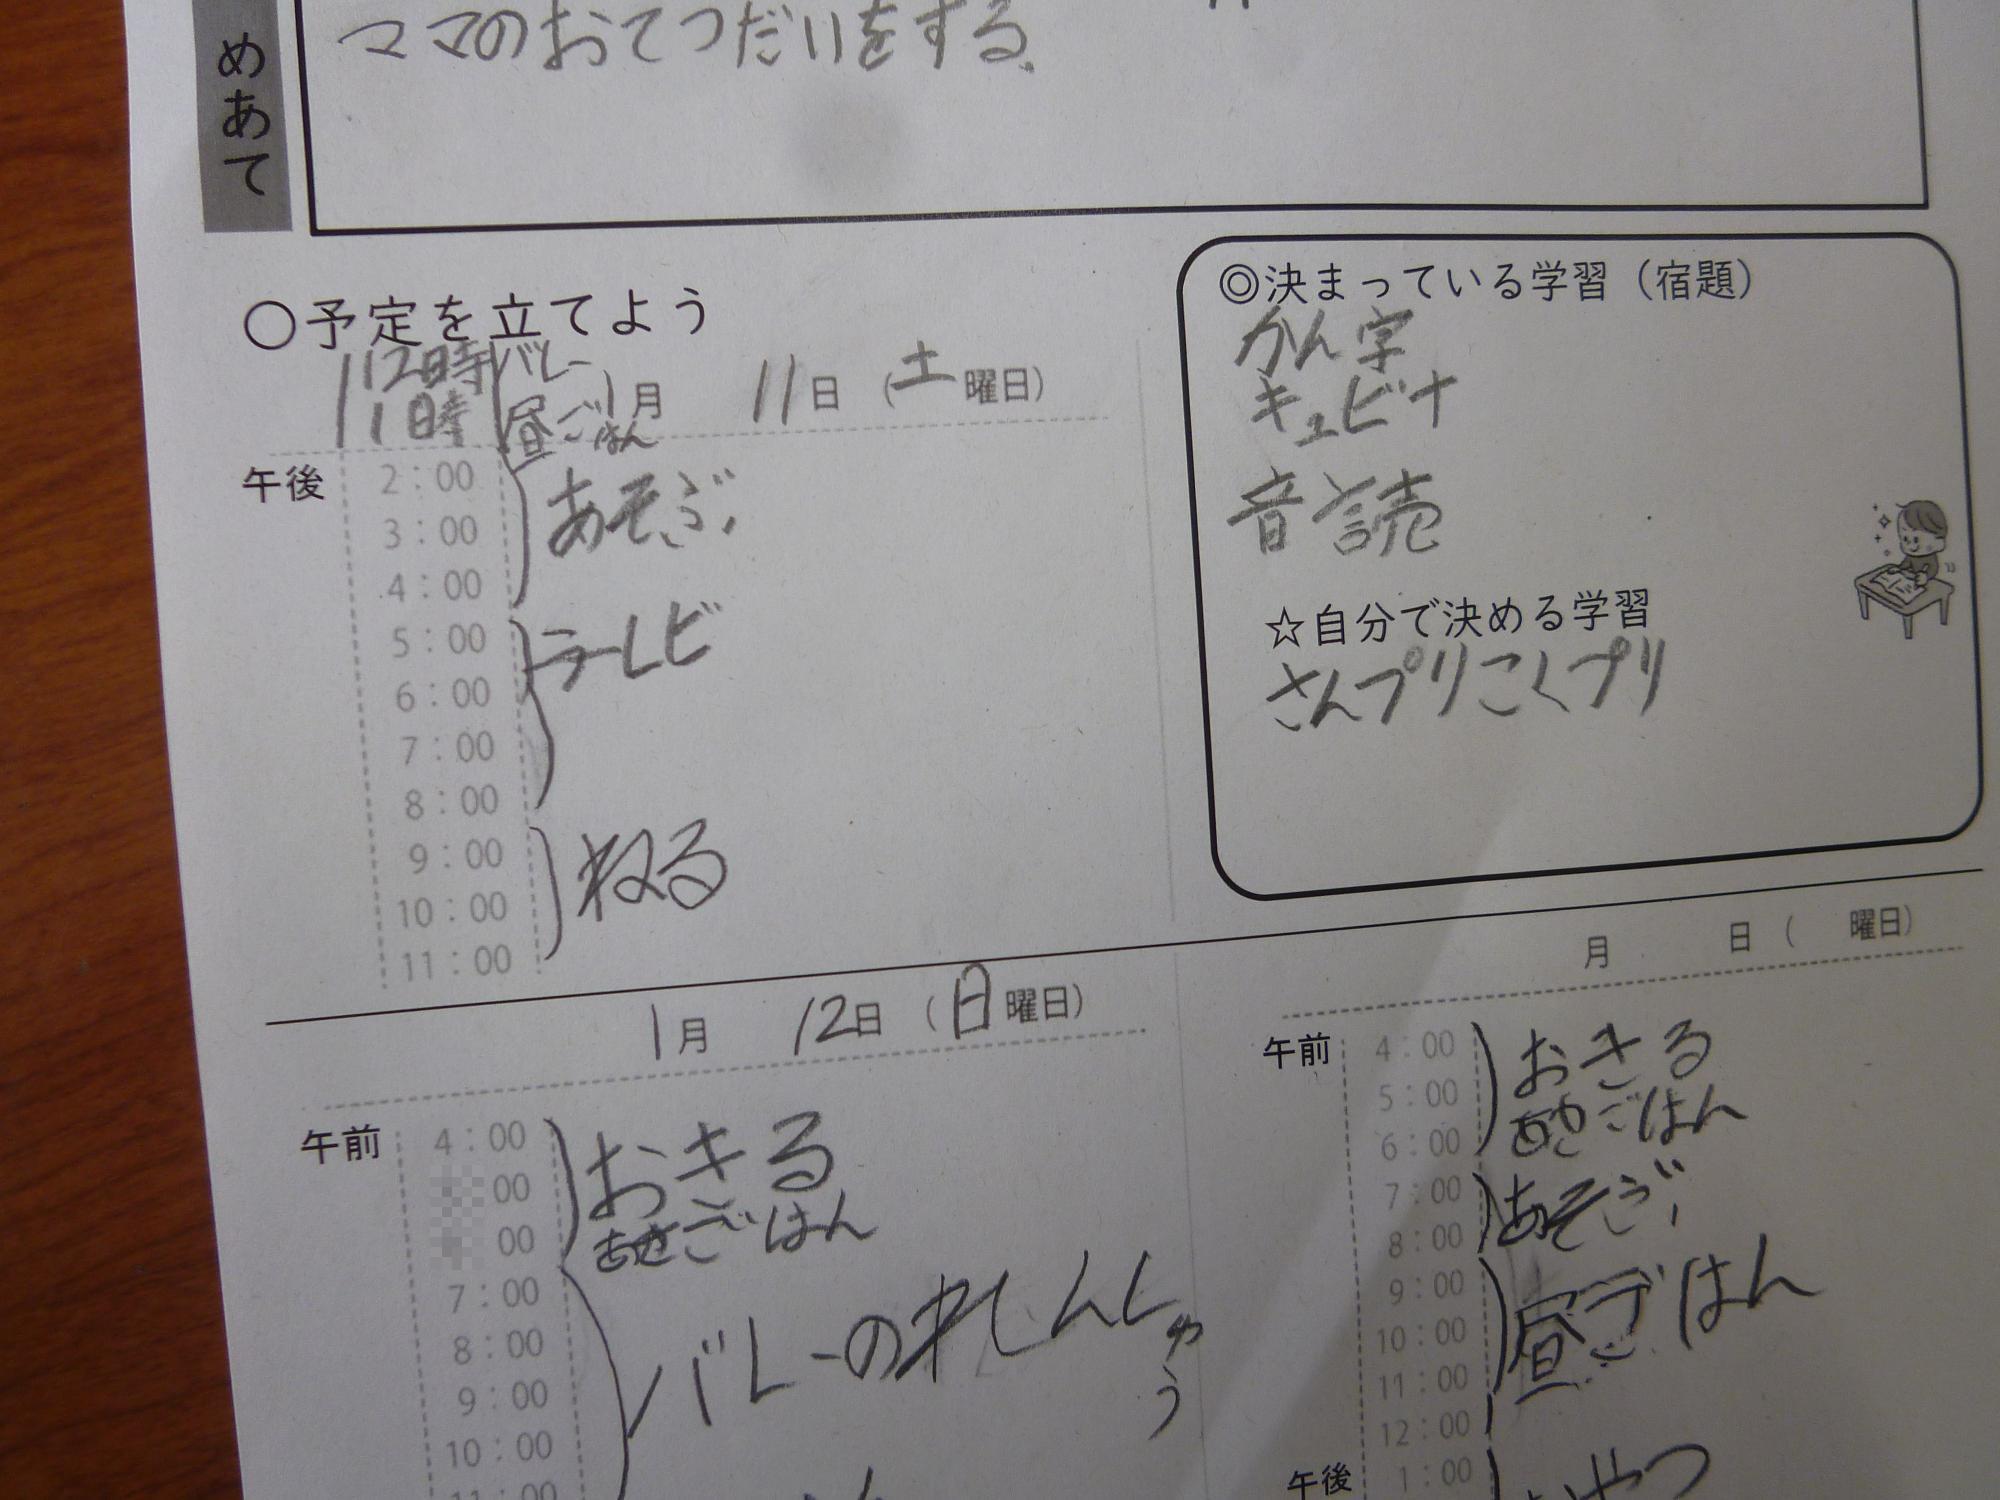 めあて
ママのおてつだいをする。
〇予定を立てよう
12時 バレー
1時 昼ごはん
1月 11日 (土曜日)
午後
2:00
3:00
4:00
あそぶ
5:00
6:00
7:00
8:00
テレビ
9:00
10:00
11:00
ねる
◎決まっている学習（宿題）
かん字
キュビナ
音読
☆自分で決める学習
さんプリこくプリ
1月 12日 (日曜日)
午前
4:00
00
00
おきる
あさごはん
7:00
8:00
9:00
10:00
11:00
バレーのれんしゅう
月 日 ( 曜日)
午前
4:00
5:00
6:00
おきる
あさごはん
7:00
8:00
あそぶ
9:00
10:00
11:00
12:00
昼ごはん
午後
1:00